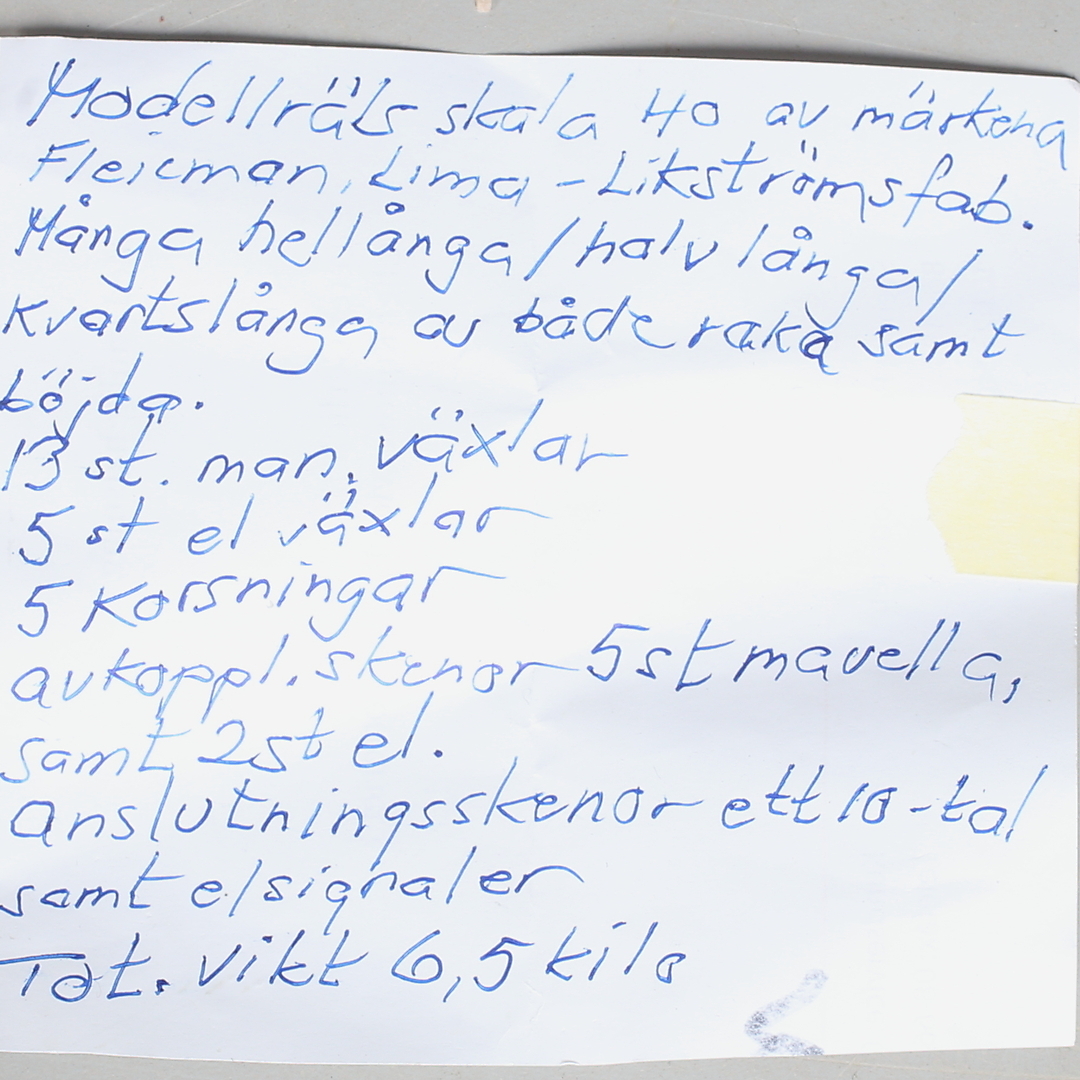 Modellräls skala HO av märkena
Fleicman, Lima - Likströmsfab.
Många hellånga/halvlånga/
kvartslånga av både raka samt
böjda.
13 st. man. växlar
5 st el växlar
5 Korsningar
avkoppl. skenor 5st mavella,
samt 2st el.
Anslutningsskenor ett 10-tal
samt elsignaler
Tot. vikt 6,5 kilo